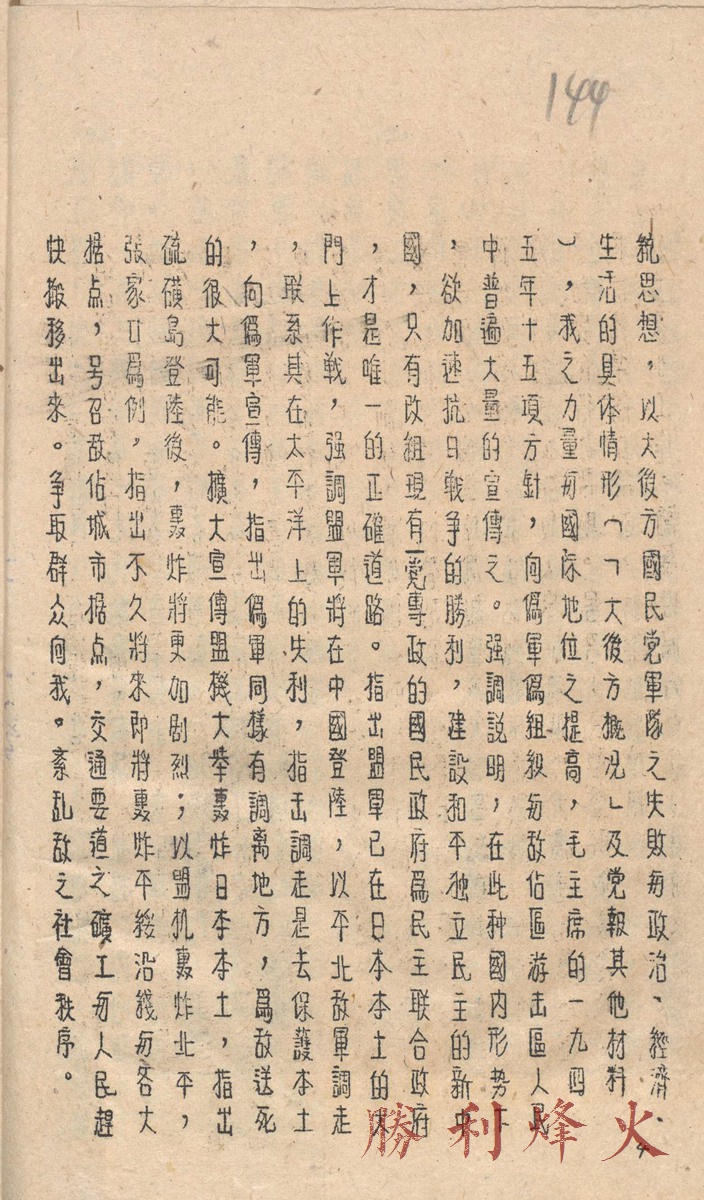 144
統思想，以大後方國民党軍隊之失敗毎政治、經濟、
生活的具体情形（「大後方概况」及党報其他材料
），我之力量毎國际地位之提高，毛主席的一九四
五年十五項方針，向僞軍僞組織毎敌佔區游击區人民
中普遍大量的宣傳之。强調説明，在此种國内形势下
，欲加速抗日戰争的勝利，建設和平独立民主的新中
國，只有改組現有一党專政的國民政府爲民主联合政府
，才是唯一的正確道路。指出盟軍已在日本本土的大
門上作戦，强調盟軍將在中國登陸，以平北敌軍調走
，联系其在太平洋上的失利，指出調走是去保護本土
，向僞軍宣傳，指出僞軍同樣有調离地方，爲敌送死
的很大可能。擴大宣傳盟機大举轟炸日本本土，指出
硫磺島登陸後，轟炸將更加剧烈；以盟机轟炸北平，
張家口爲例，指出不久將來即將轟炸平綏沿綫毎各大
据点，号召敌佔城市据点，交通要道之礦工毎人民趕
快搬移出來。争取群众向我。紊乱敌之社會秩序。
4
勝利烽火